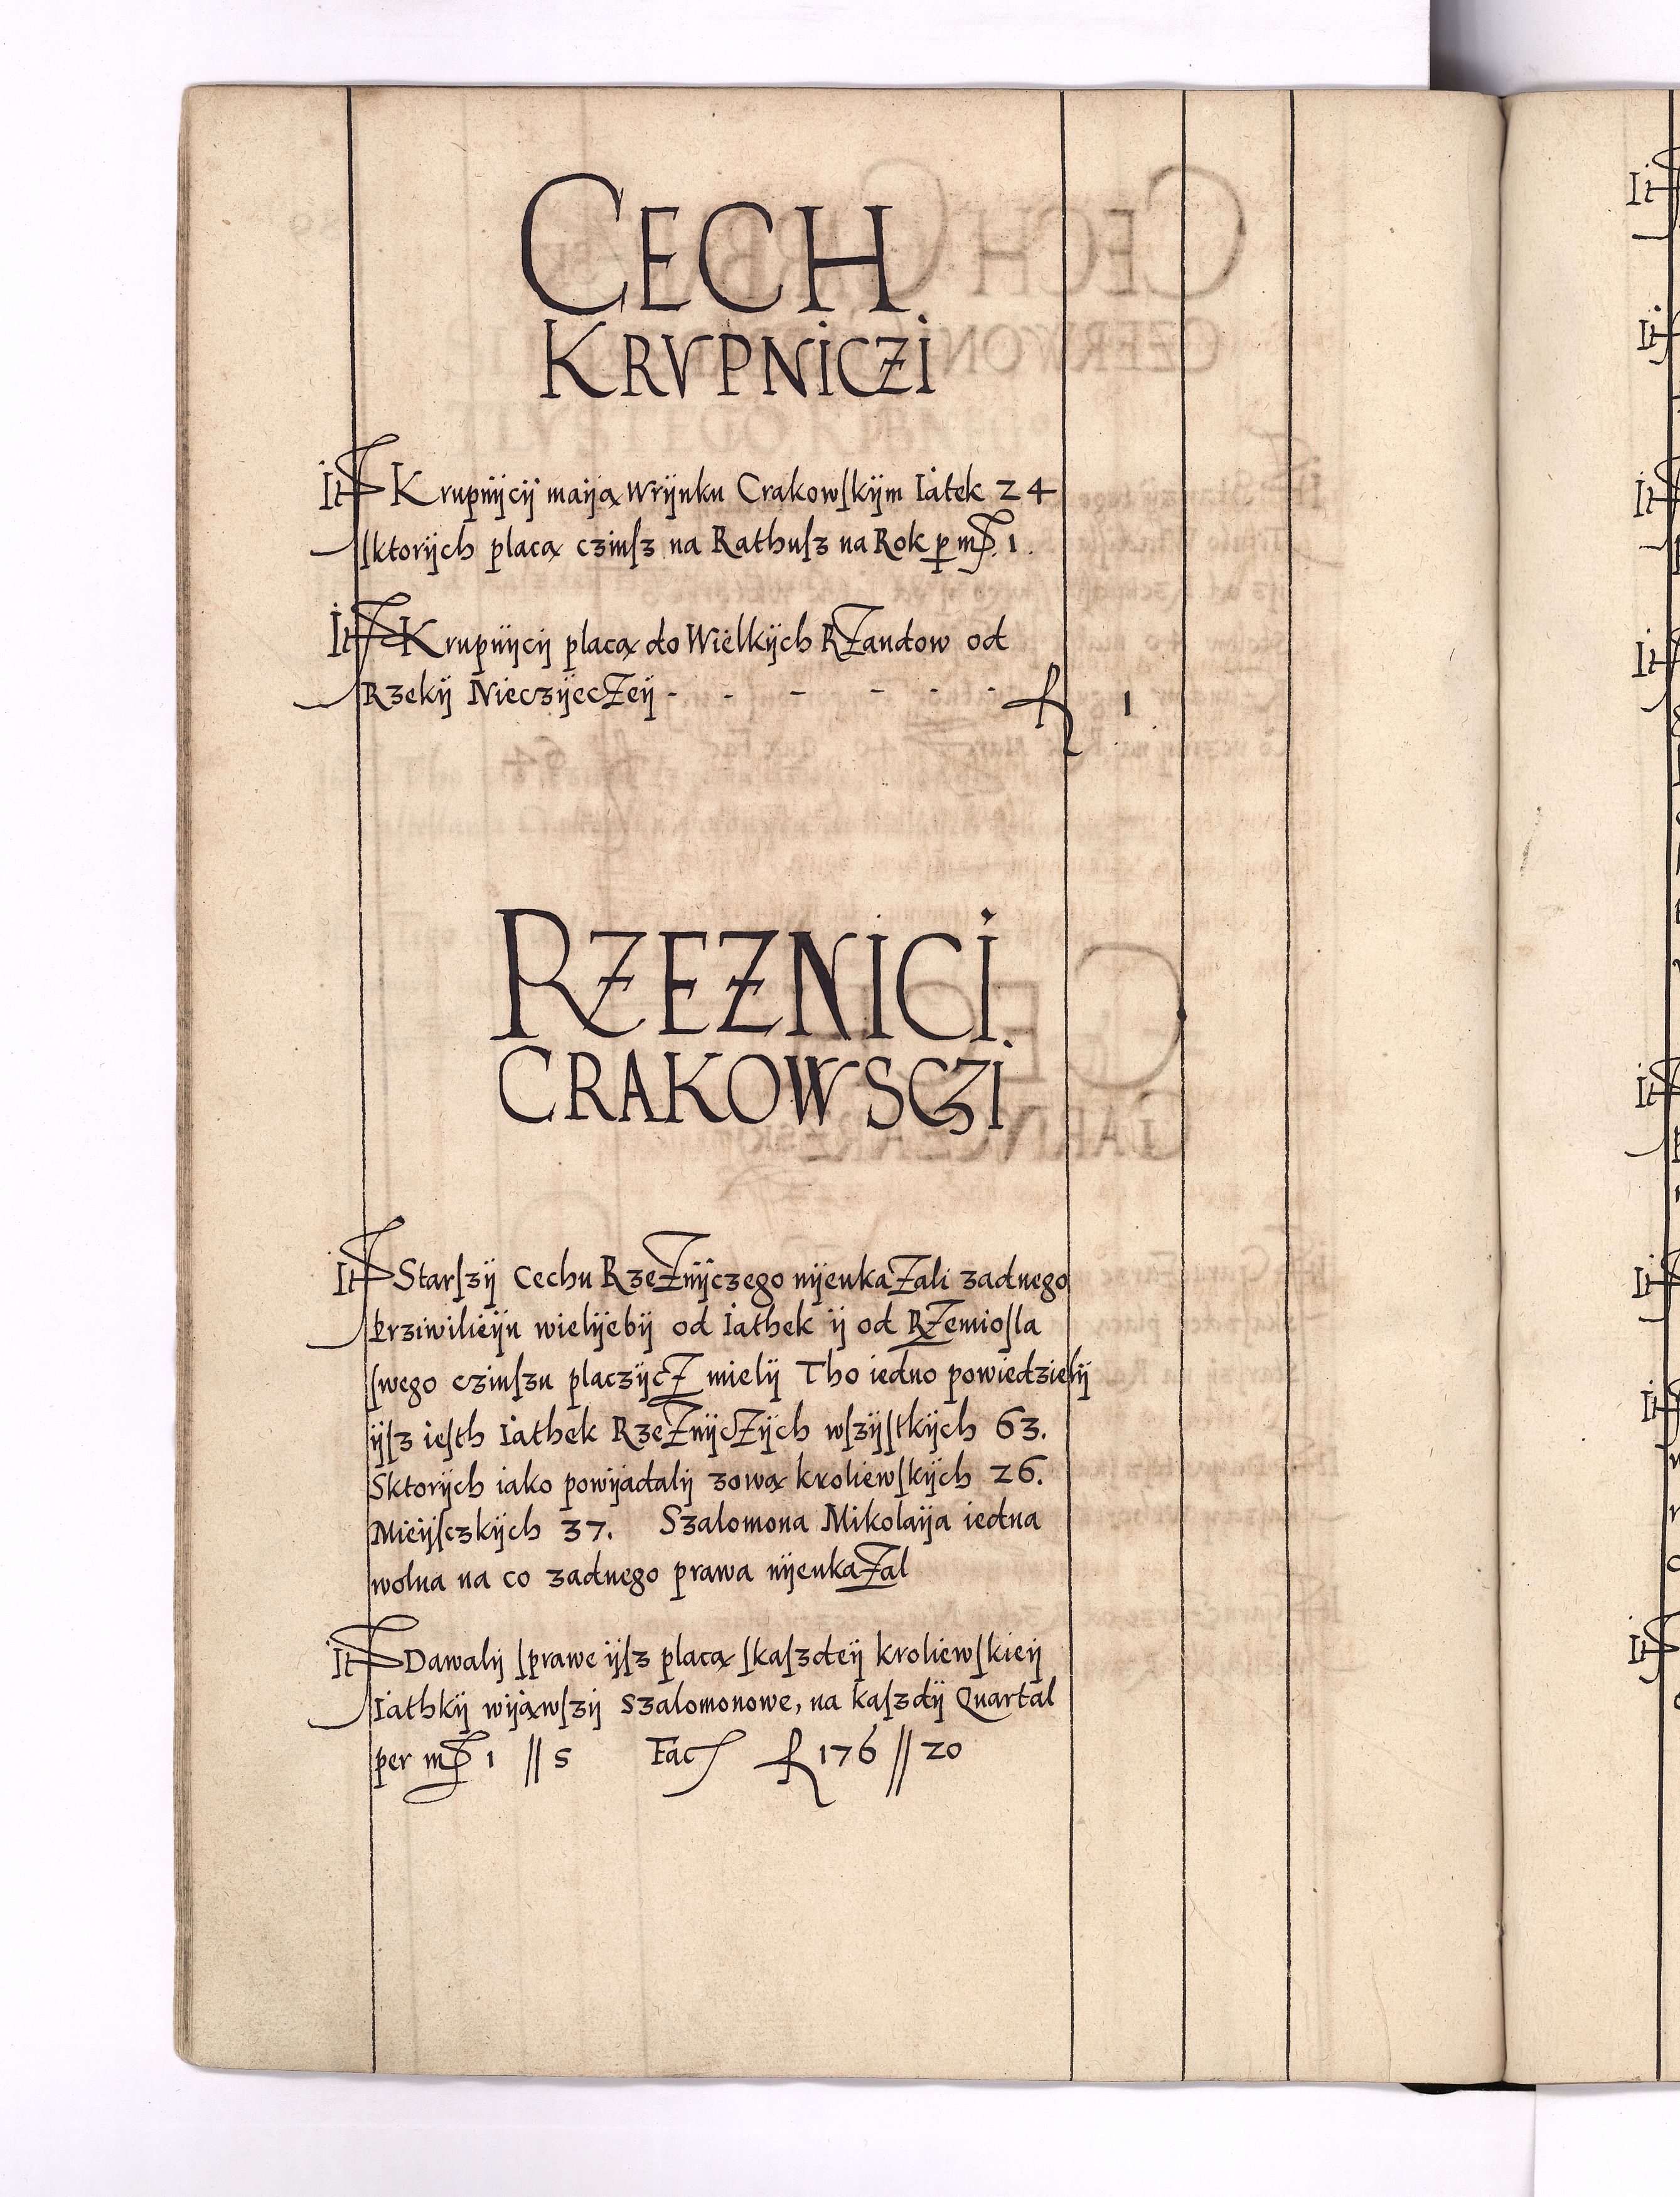 CECH
KRVPNICZI
It Krupnijcij maiją wrijnku Crakowſkijm Iatek 24
ſktorijch placą czinſz na Rathuſz na Rok p m 1.
It Krupnijcij placą do Wielkijch RZandow od
Rzekij NieczijecZeij - - - - - - fl 1
RZEZNICI
CRAKOWSCZI
It Starſzij Cechu RzeZnijczego nijeukaZali zadnego
Prziwilieiju wielijebij od Iathek ij od RZemioſla
ſwego czinſzu placzijcZ mielij Tho iedno powiedzielij
ijſz ieſth Iathek RzeZnijcZijch wſzijſtkijch 63.
Sktorijch iako powijadalij zową kroliewſkijch 26.
Mieijſczkijch 37. Szalomona Mikolaija iedna
wolna na co zadnego prawa nijeukaZal
It Dawalij ſprawe ijſz placą ſkaſzdeij kroliewſkieij
Iathkij wijąwſzij Szalomonowe, na kaſzdij Quartal
per m 1 // 5 Fac fl 176 // 20